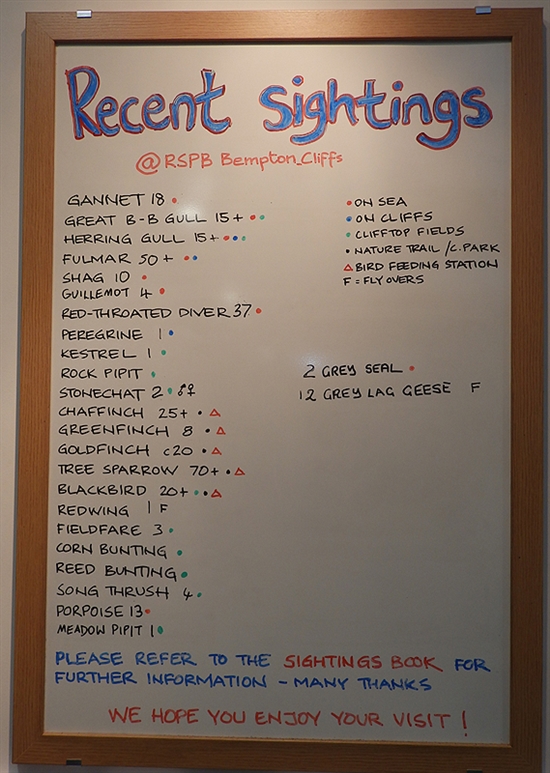 Recent Sightings
@RSPB Bempton_Cliffs
GANNET 18 •
GREAT B-B GULL 15+ • •
HERRING GULL 15+ • • •
FULMAR 50+ • •
SHAG 10 •
GUILLEMOT 4 •
RED-THROATED DIVER 37 •
PEREGRINE 1 •
KESTREL 1 •
ROCK PIPIT •
STONECHAT 2 • ♂♀
CHAFFINCH 25+ • △
GREENFINCH 8 • △
GOLDFINCH c20 • △
TREE SPARROW 70+ • △
BLACKBIRD 20+ • • △
REDWING 1 F
FIELDFARE 3 •
CORN BUNTING •
REED BUNTING •
SONG THRUSH 4 •
PORPOISE 13 •
MEADOW PIPIT 1 •
• ON SEA
• ON CLIFFS
• CLIFFTOP FIELDS
• NATURE TRAIL /C.PARK
△ BIRD FEEDING STATION
F = FLY OVERS
2 GREY SEAL •
12 GREY LAG GEESE F
PLEASE REFER TO THE SIGHTINGS BOOK FOR
FURTHER INFORMATION - MANY THANKS
WE HOPE YOU ENJOY YOUR VISIT !